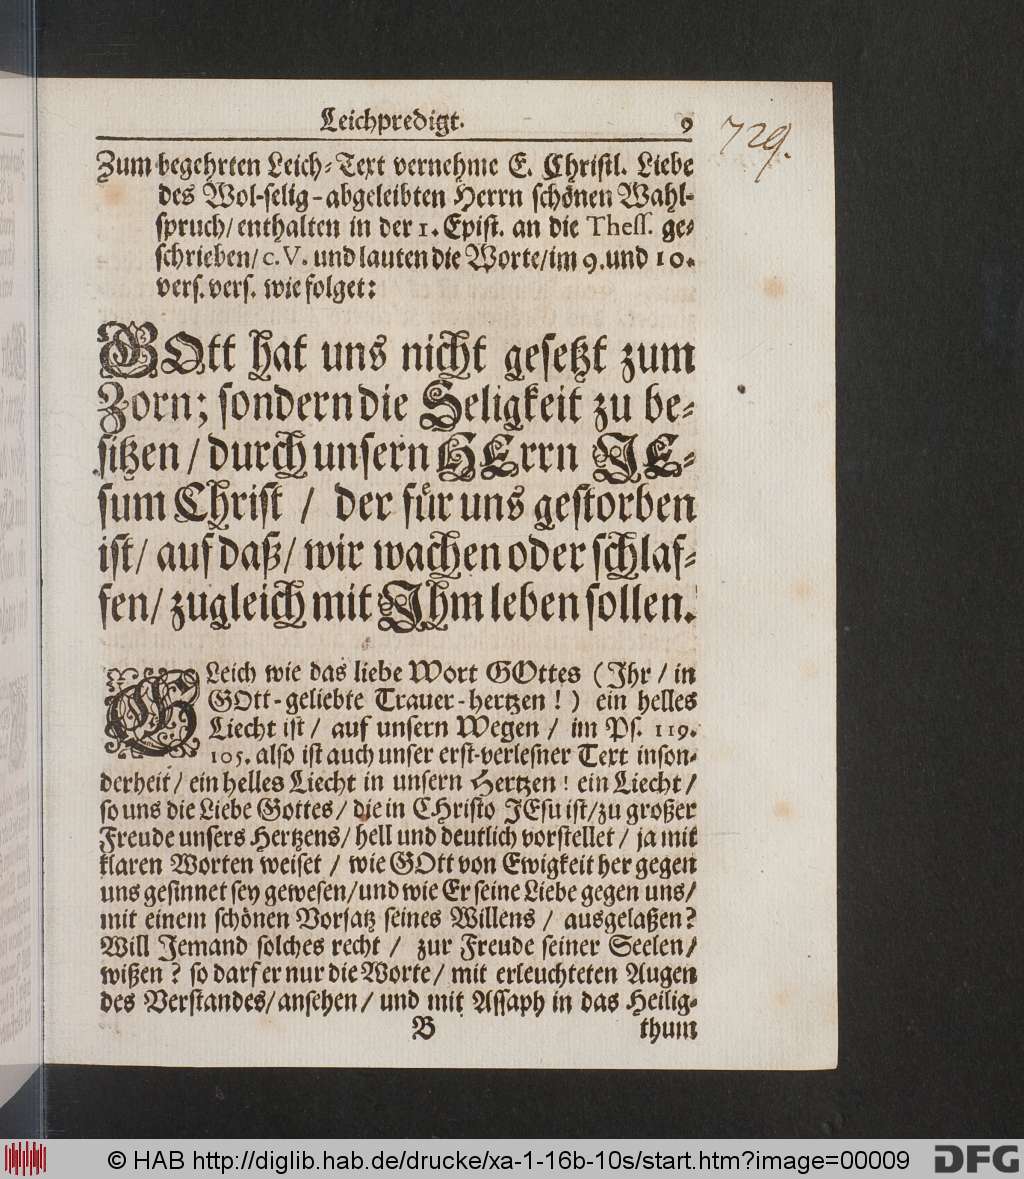 Leichpredigt. 9
729.
Zum begehrten Leich-Text vernehme E. Christl. Liebe
des Wol-selig-abgeleibten Herrn schönen Wahl-
spruch/ enthalten in der 1. Epist. an die Thess. ge-
schrieben/ c. V. und lauten die Worte/ im 9. und 10.
vers. vers. wie folget:
GOtt hat uns nicht gesetzt zum
Zorn; sondern die Seligkeit zu be-
sitzen / durch unsern HErrn JE-
sum Christ / der für uns gestorben
ist/ auf daß/ wir wachen oder schlaf-
fen/ zugleich mit Ihm leben sollen.
GLeich wie das liebe Wort GOttes (Ihr / in
GOtt-geliebte Trauer-hertzen!) ein helles
Liecht ist / auf unsern Wegen / im Ps. 119.
105. also ist auch unser erst-verlesner Text inson-
derheit/ ein helles Liecht in unsern Hertzen! ein Liecht/
so uns die Liebe Gottes/ die in CHristo JEsu ist/ zu großer
Freude unsers Hertzens/ hell und deutlich vorstellet / ja mit
klaren Worten weiset / wie GOtt von Ewigkeit her gegen
uns gesinnet sey gewesen/ und wie Er seine Liebe gegen uns/
mit einem schönen Vorsatz seines Willens / ausgelaßen?
Will Jemand solches recht / zur Freude seiner Seelen/
wißen? so darf er nur die Worte/ mit erleuchteten Augen
des Verstandes/ ansehen/ und mit Assaph in das Heilig-
B thum
© HAB http://diglib.hab.de/drucke/xa-1-16b-10s/start.htm?image=00009
DFG